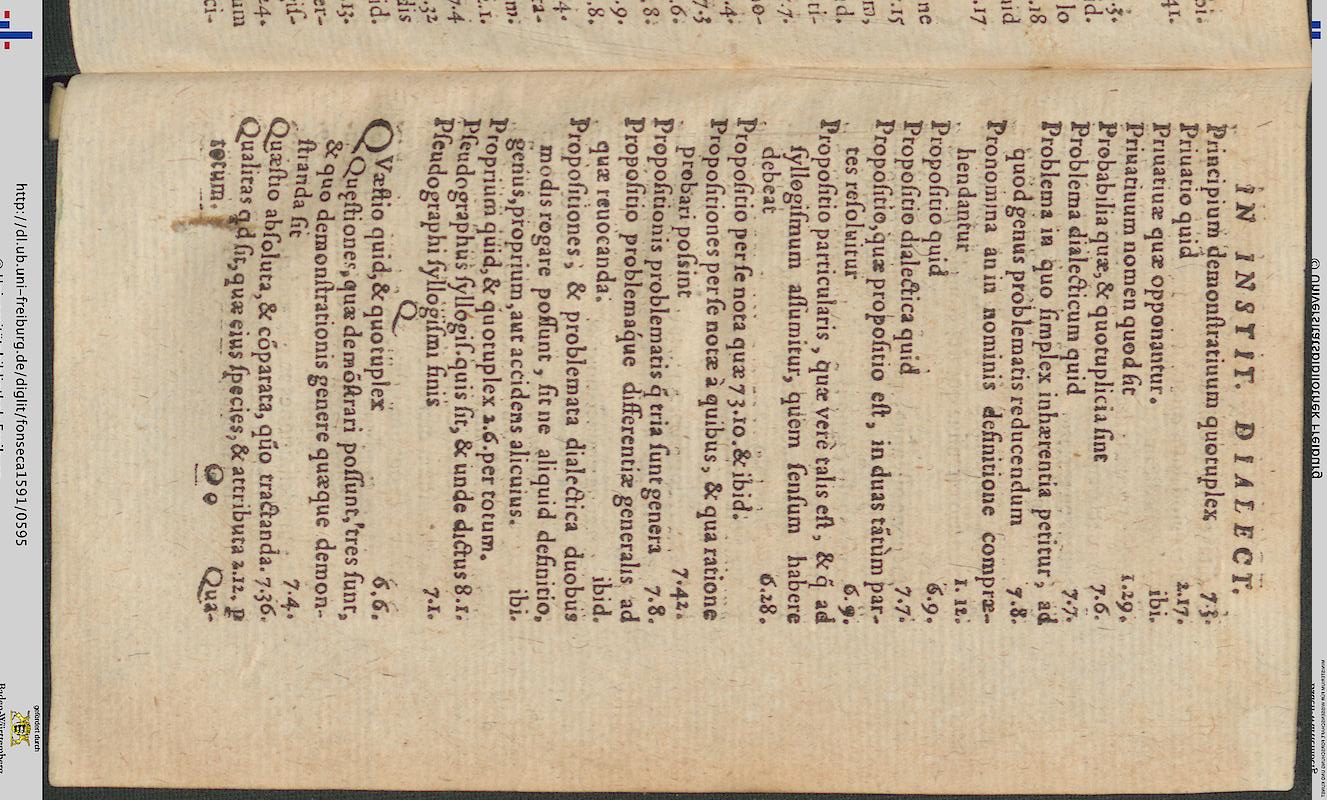 IN INSTIT. DIALECT.
Principium demonſtratiuum quotuplex 7.3.
Priuatio quid 2.17.
Priuatiuæ quæ opponantur. ibi.
Priuatiuum nomen quod ſit 1.29.
Probabilia quæ, & quotuplicia ſint 7.6.
Problema dialecticum quid 7.7.
Problema in quo ſimplex inhærentia petitur, ad
quod genus problematis reducendum 7.8.
Pronomina an in nominis definitione compræ-
hendantur 1.12.
Propoſitio quid 6.9.
Propoſitio dialectica quid 7.7.
Propoſitio, quæ propoſitio eſt, in duas tātùm par-
tes reſoluitur 6.9.
Propoſitio particularis, quæ verè talis eſt, & q̃ ad
ſyllogiſmum aſſumitur, quem ſenſum habere
debeat 6.28.
Propoſitio per ſe nota quæ 7 3.10. & ibid.
Propoſitiones per ſe notæ à quibus, & qua ratione
probari poſsint 7.42.
Propoſitionis problematis q̃ tria ſunt genera 7.8.
Propoſitio problemaq́ue differentiæ generalis ad
quæ reuocanda. ibid.
Propoſitiones, & problemata dialectica duobus
modis rogare poſſunt, ſit ne aliquid definitio,
genus, proprium, aut accidens alicuius. ibi.
Proprium quid, & quotuplex 2.6. per totum.
Pſeudographus ſyllogiſ. quis ſit, & unde dictus 8.1.
Pſeudographi ſyllogiſmi finis 7.1.
Q
QVæſtio quid, & quotuplex 6.6.
Quęſtiones, quæ demōſtrari poſſunt, tres ſunt,
& quo demonſtrationis genere quæque demon-
ſtranda ſit 7.4.
Quæſtio abſoluta, & cōparata, quō tractanda. 7.36.
Qualitas qd ſit, quæ eius ſpecies, & attributa 2.12. p
totum.
Qq Qua-
http://dl.ub.uni-freiburg.de/diglit/fonseca1591/0595
gefördert durch